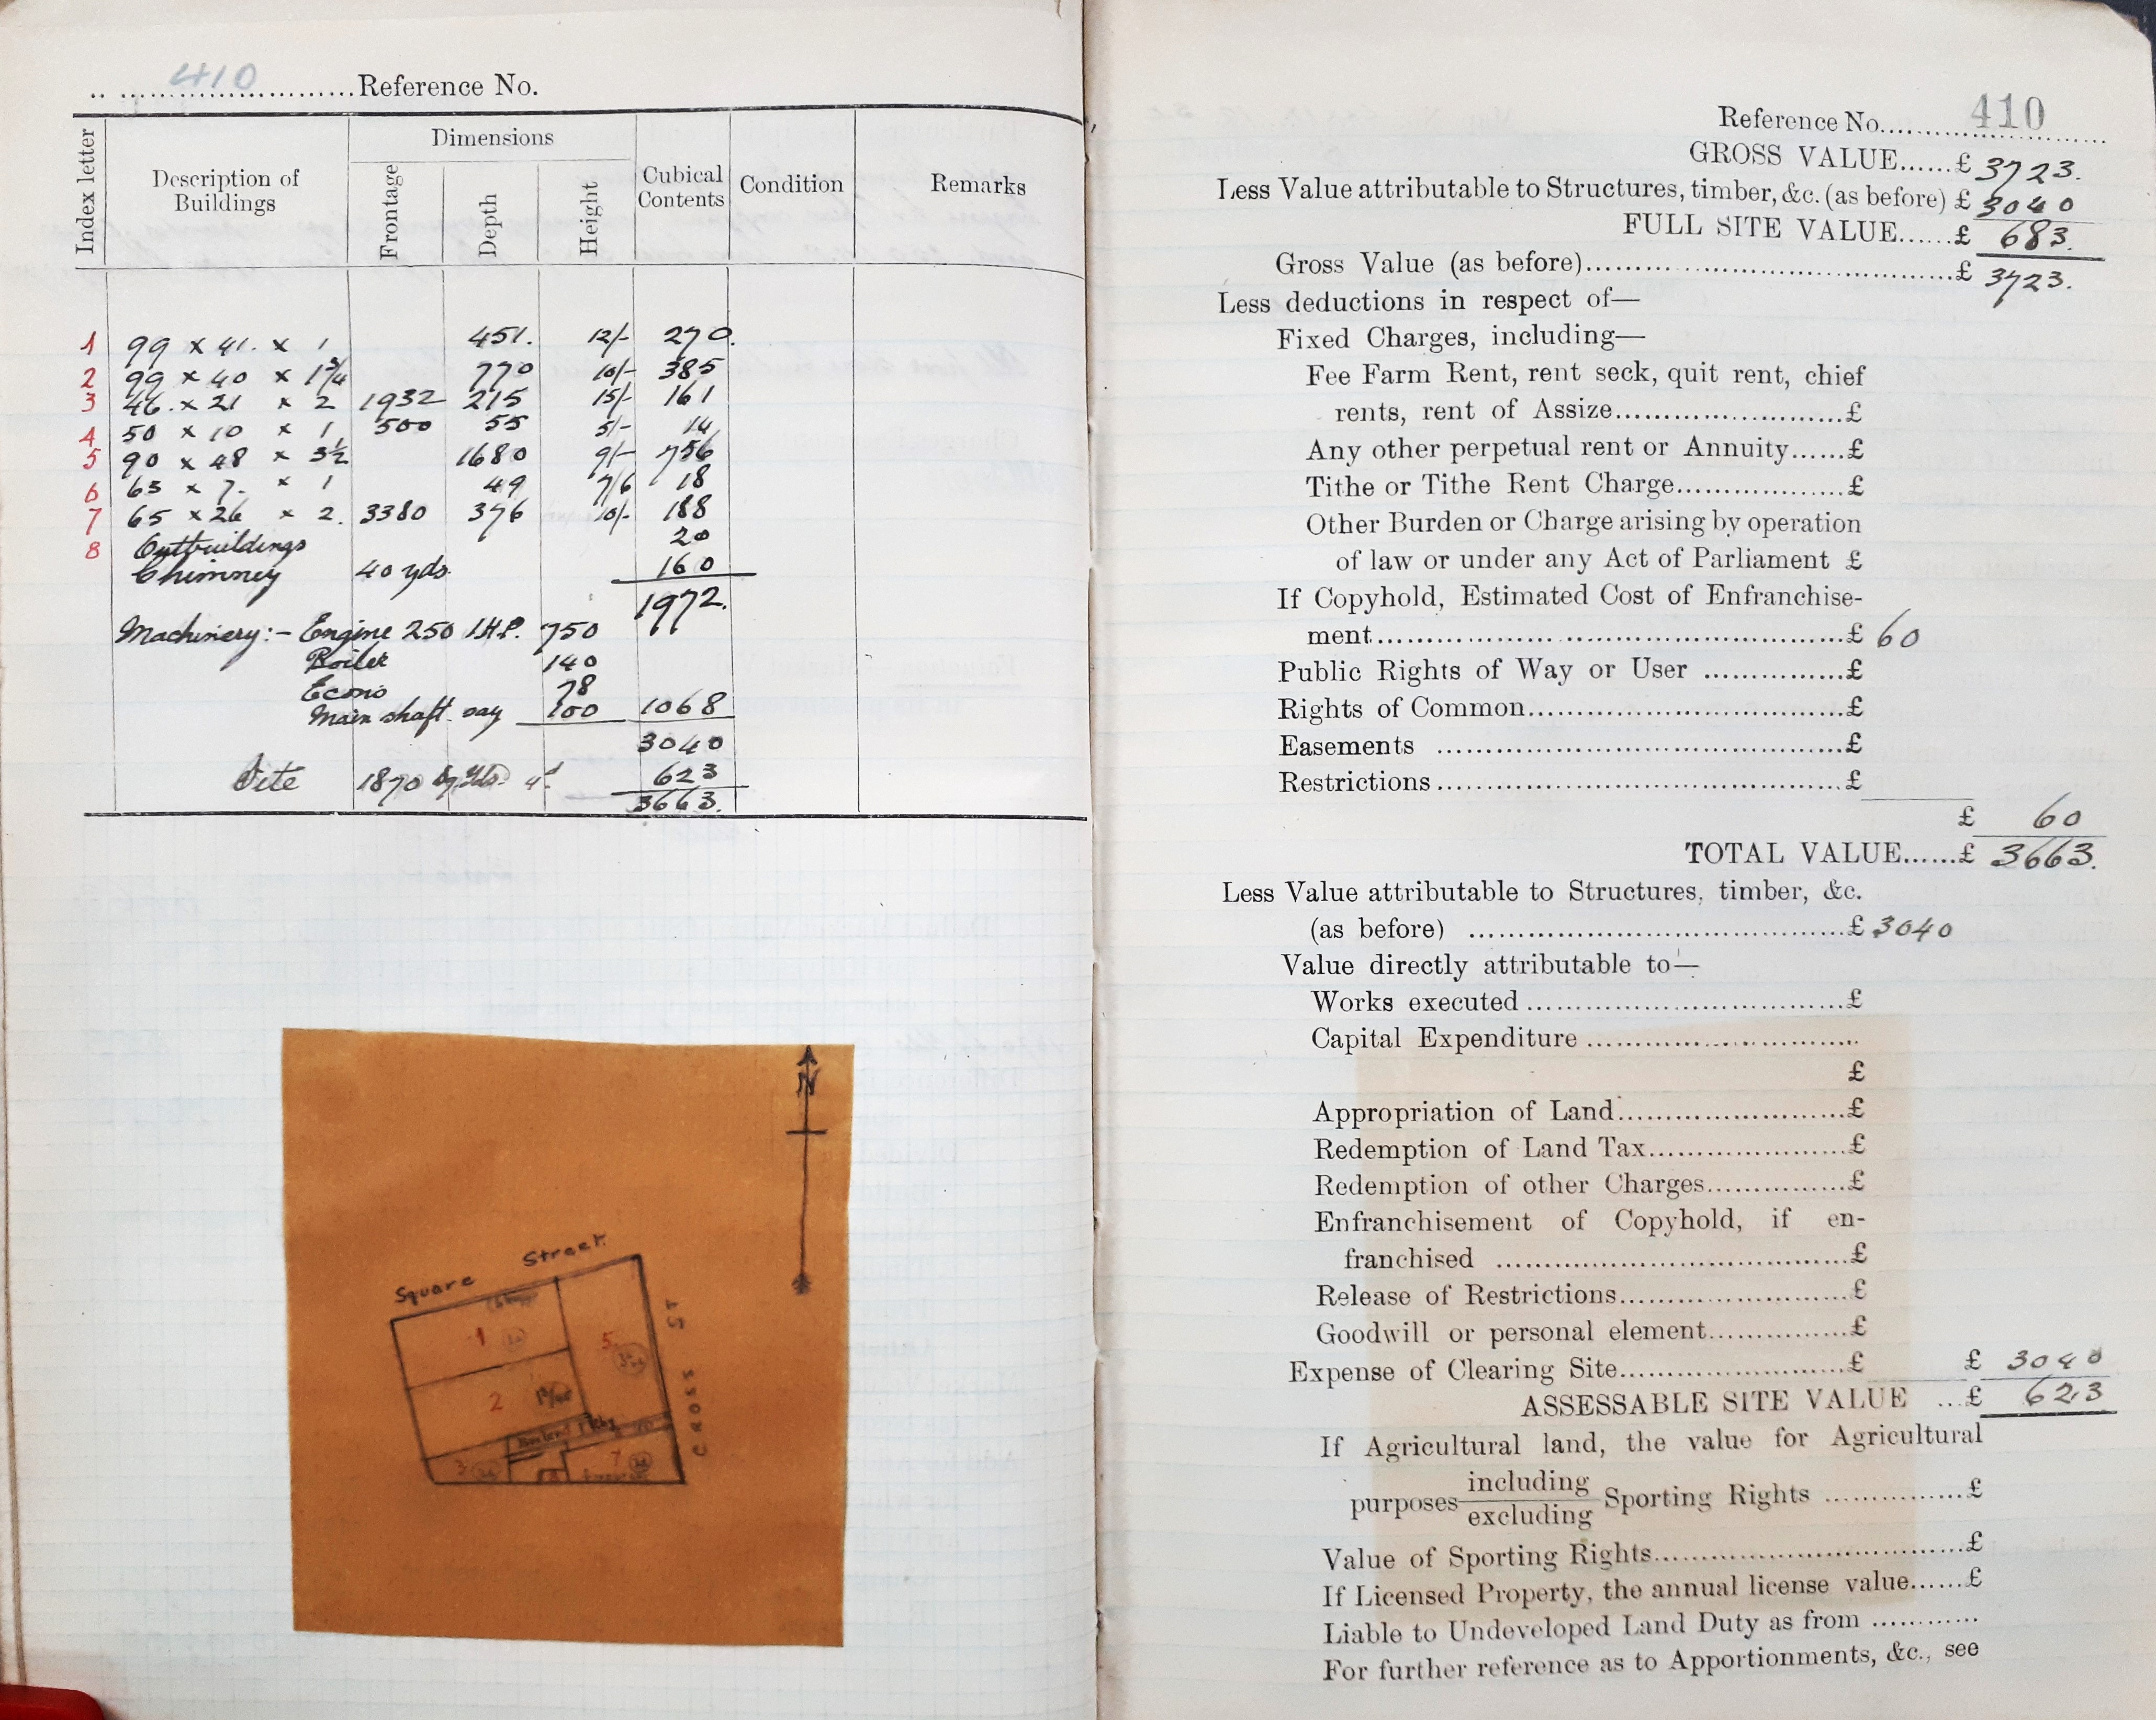 410 Reference No.
Index letter
Description of Buildings
Dimensions
Frontage
Depth
Height
Cubical Contents
Condition
Remarks
1 99 x 41. x 1 451. 12/- 270.
2 99 x 40 x 1 3/4 770 10/- 385
3 46. x 21 x 2 1932 215 15/- 161
4 50 x 10 x 1 500 55 5/- 14
5 90 x 48 x 3½ 1680 9/- 756
6 63 x 7. x 1 49 7/6 18
7 65 x 26 x 2. 3380 376 10/- 188
8 Outbuildings 20
Chimney 40 yds. 160
1972.
Machinery:- Engine 250 I.H.P. 750
Boiler 140
Econo 78
Main shaft. say 100 1068
3040
Site 1870 Sq. Yds. 4d 623
3663.
N
Square Street.
CROSS ST
1
5
2
3
7
Reference No. 410
GROSS VALUE......£ 3723.
Less Value attributable to Structures, timber, &c. (as before) £ 3040
FULL SITE VALUE......£ 683.
Gross Value (as before)......£ 3723.
Less deductions in respect of—
Fixed Charges, including—
Fee Farm Rent, rent seck, quit rent, chief
rents, rent of Assize......£
Any other perpetual rent or Annuity......£
Tithe or Tithe Rent Charge......£
Other Burden or Charge arising by operation
of law or under any Act of Parliament £
If Copyhold, Estimated Cost of Enfranchise-
ment......£ 60
Public Rights of Way or User ......£
Rights of Common......£
Easements ......£
Restrictions......£
£ 60
TOTAL VALUE......£ 3663.
Less Value attributable to Structures, timber, &c.
(as before) ......£ 3040
Value directly attributable to—
Works executed ......£
Capital Expenditure ......
£
Appropriation of Land......£
Redemption of Land Tax......£
Redemption of other Charges......£
Enfranchisement of Copyhold, if en-
franchised ......£
Release of Restrictions......£
Goodwill or personal element......£
Expense of Clearing Site......£ £ 3040
ASSESSABLE SITE VALUE ...£ 623
If Agricultural land, the value for Agricultural
purposes including excluding Sporting Rights ......£
Value of Sporting Rights......£
If Licensed Property, the annual license value......£
Liable to Undeveloped Land Duty as from ............
For further reference as to Apportionments, &c., see